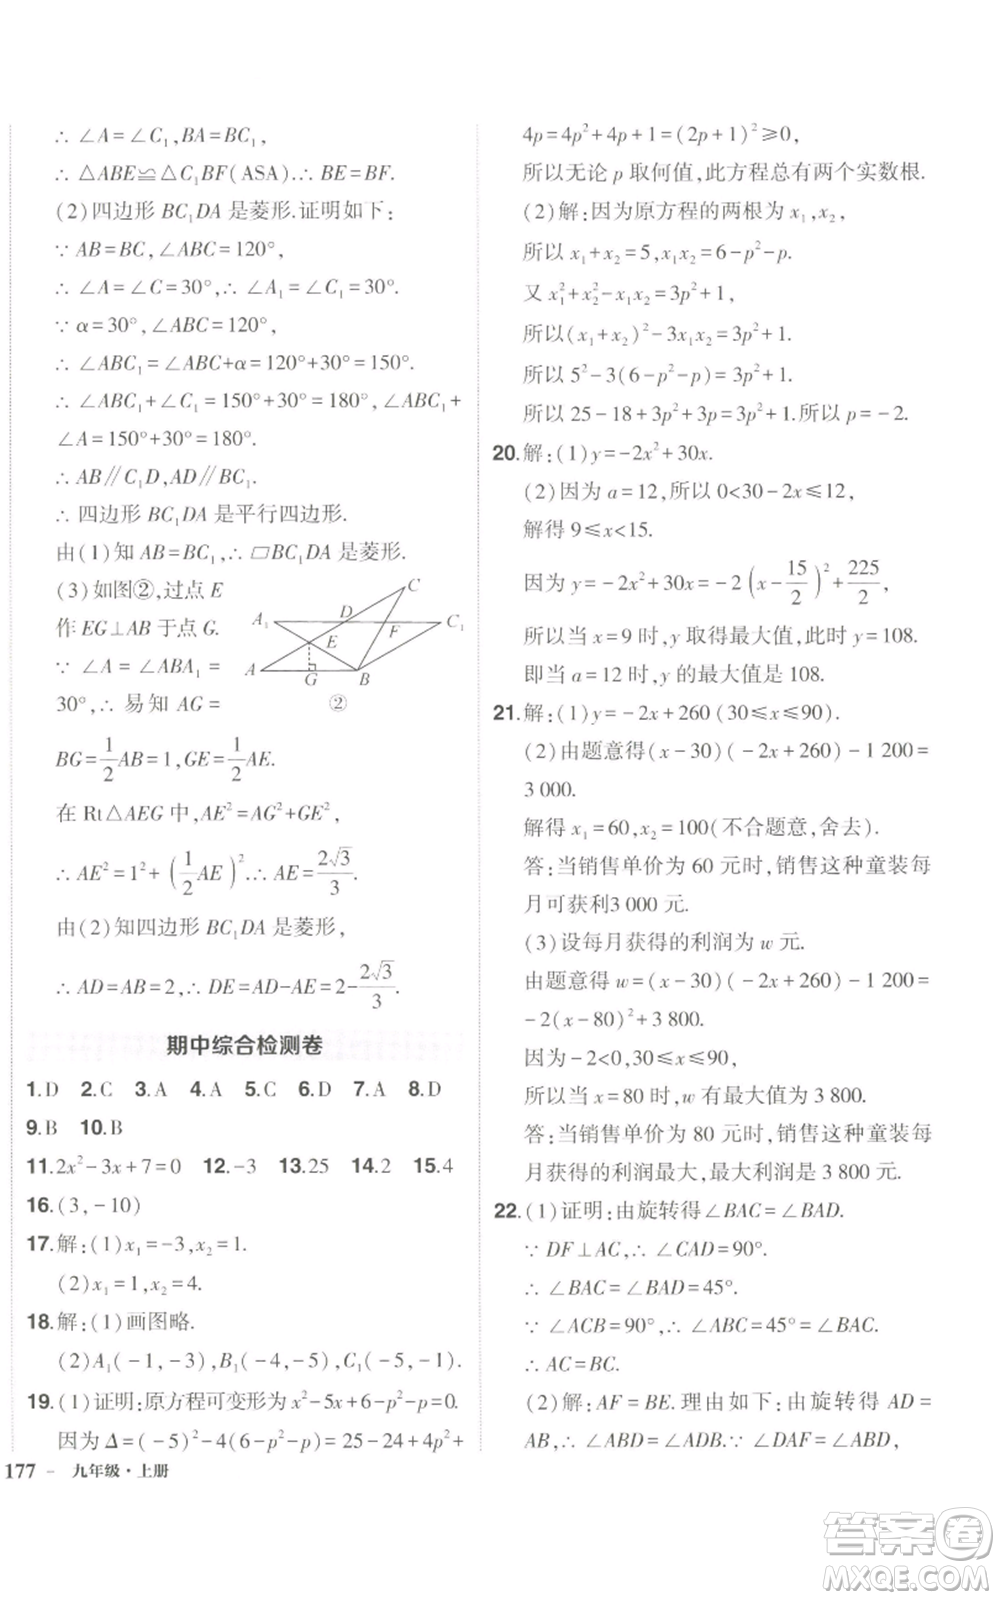 ∴ ∠A=∠C₁,BA=BC₁,
∴ △ABE≌△C₁BF(ASA).∴ BE=BF.
(2)四边形 BC₁DA 是菱形.证明如下:
∵ AB=BC,∠ABC=120°,
∴ ∠A=∠C=30°,∴ ∠A₁=∠C₁=30°.
∵ α=30°,∠ABC=120°,
∴ ∠ABC₁=∠ABC+α=120°+30°=150°.
∴ ∠ABC₁+∠C₁=150°+30°=180°,∠ABC₁+
∠A=150°+30°=180°.
∴ AB∥C₁D,AD∥BC₁.
∴ 四边形 BC₁DA 是平行四边形.
由(1)知 AB=BC₁,∴ ▱BC₁DA 是菱形.
(3)如图②,过点 E
作 EG⊥AB 于点 G.
∵ ∠A=∠ABA₁=
30°,∴ 易知 AG=
BG=1/2 AB=1,GE=1/2 AE.
C
A₁ D F C₁
E
A G B
②
在 Rt△AEG 中,AE²=AG²+GE²,
∴ AE²=1²+(1/2 AE)².∴ AE=2√3/3.
由(2)知四边形 BC₁DA 是菱形,
∴ AD=AB=2,∴ DE=AD-AE=2-2√3/3.
期中综合检测卷
1.D 2.C 3.A 4.A 5.C 6.A 7.A 8.D
9.B 10.B
11.2x²-3x+7=0 12.-3 13.25 14.2 15.4
16.(3,-10)
17.解:(1)x₁=-3,x₂=1.
(2)x₁=1,x₂=4.
18.解:(1)画图略.
(2)A₁(-1,-3),B₁(-4,-5),C₁(-5,-1).
19.(1)证明:原方程可变形为 x²-5x+6-p²-p=0.
因为 Δ=(-5)²-4(6-p²-p)=25-24+4p²+
177 - 九年级·上册
4p=4p²+4p+1=(2p+1)²≥0,
所以无论 p 取何值,此方程总有两个实数根.
(2)解:因为原方程的两根为 x₁,x₂,
所以 x₁+x₂=5,x₁x₂=6-p²-p.
又 x₁²+x₂²-x₁x₂=3p²+1,
所以(x₁+x₂)²-3x₁x₂=3p²+1,
所以 5²-3(6-p²-p)=3p²+1,
所以 25-18+3p²+3p=3p²+1.所以 p=-2.
20.解:(1)y=-2x²+30x.
(2)因为 a=12,所以 0<30-2x≤12,
解得 9≤x<15.
因为 y=-2x²+30x=-2(x-15/2)²+225/2,
所以当 x=9 时,y 取得最大值,此时 y=108.
即当 a=12 时,y 的最大值是 108.
21.解:(1)y=-2x+260(30≤x≤90).
(2)由题意得(x-30)(-2x+260)-1 200=
3 000.
解得 x₁=60,x₂=100(不合题意,舍去).
答:当销售单价为 60 元时,销售这种童装每
月可获利3 000 元.
(3)设每月获得的利润为 w 元.
由题意得 w=(x-30)(-2x+260)-1 200=
-2(x-80)²+3 800.
因为-2<0,30≤x≤90,
所以当 x=80 时,w 有最大值为 3 800.
答:当销售单价为 80 元时,销售这种童装每
月获得的利润最大,最大利润是 3 800 元.
22.(1)证明:由旋转得∠BAC=∠BAD.
∵ DF⊥AC,∴ ∠CAD=90°.
∴ ∠BAC=∠BAD=45°.
∵ ∠ACB=90°,∴ ∠ABC=45°=∠BAC.
∴ AC=BC.
(2)解:AF=BE.理由如下:由旋转得 AD=
AB,∴ ∠ABD=∠ADB.∵ ∠CAD=90°,
答案卷
MXQE.COM